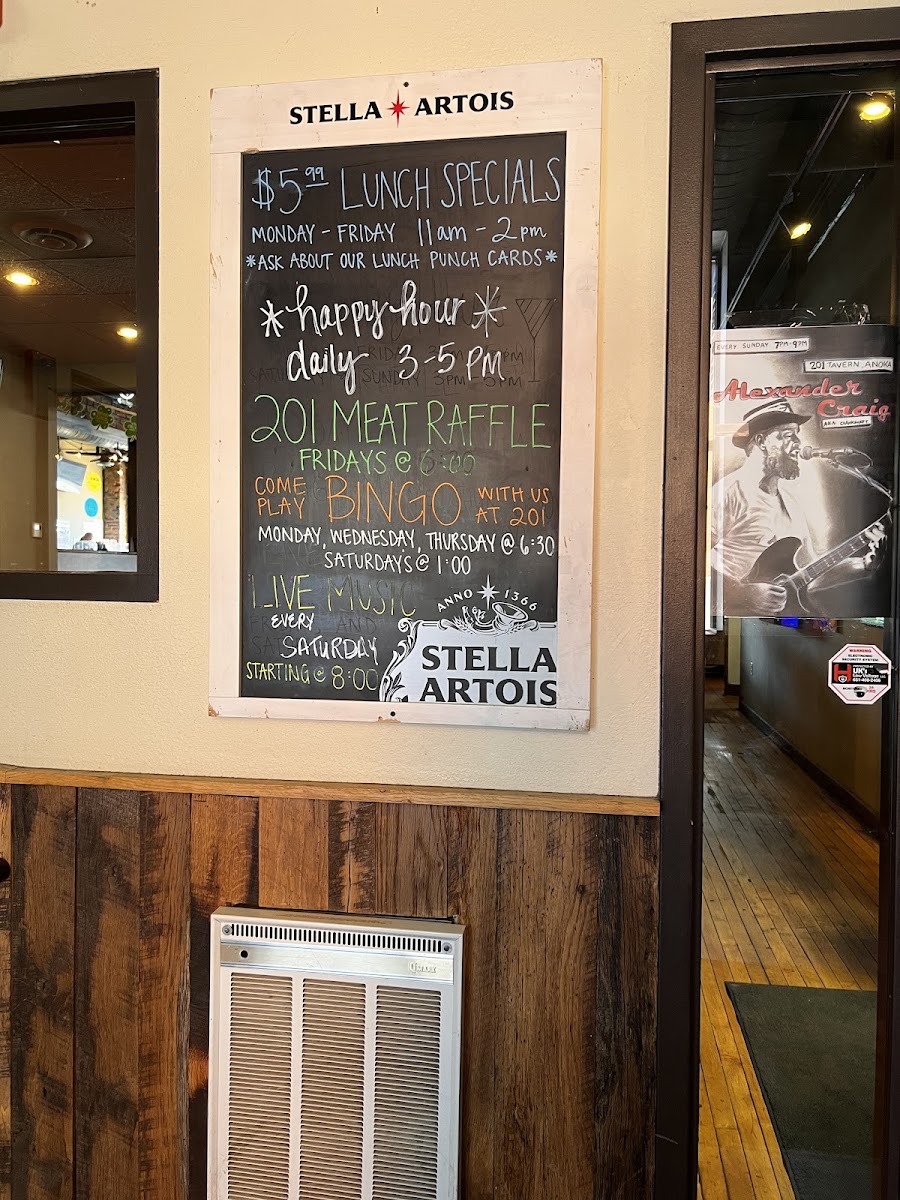 STELLA ARTOIS
$5.99 LUNCH SPECIALS
MONDAY - FRIDAY 11am - 2pm
*ASK ABOUT OUR LUNCH PUNCH CARDS*
*happy hour*
daily 3-5 PM
201 MEAT RAFFLE
FRIDAYS @ 6:00
COME PLAY BINGO WITH US AT 201
MONDAY, WEDNESDAY, THURSDAY @ 6:30
SATURDAYS @ 1:00
LIVE MUSIC
EVERY
SATURDAY
STARTING @ 8:00
ANNO 1366
STELLA
ARTOIS
EVERY SUNDAY 7PM-9PM
201 TAVERN, ANOKA
Alexander
Craig
WARNING
ELECTRONIC
SECURITY SYSTEM